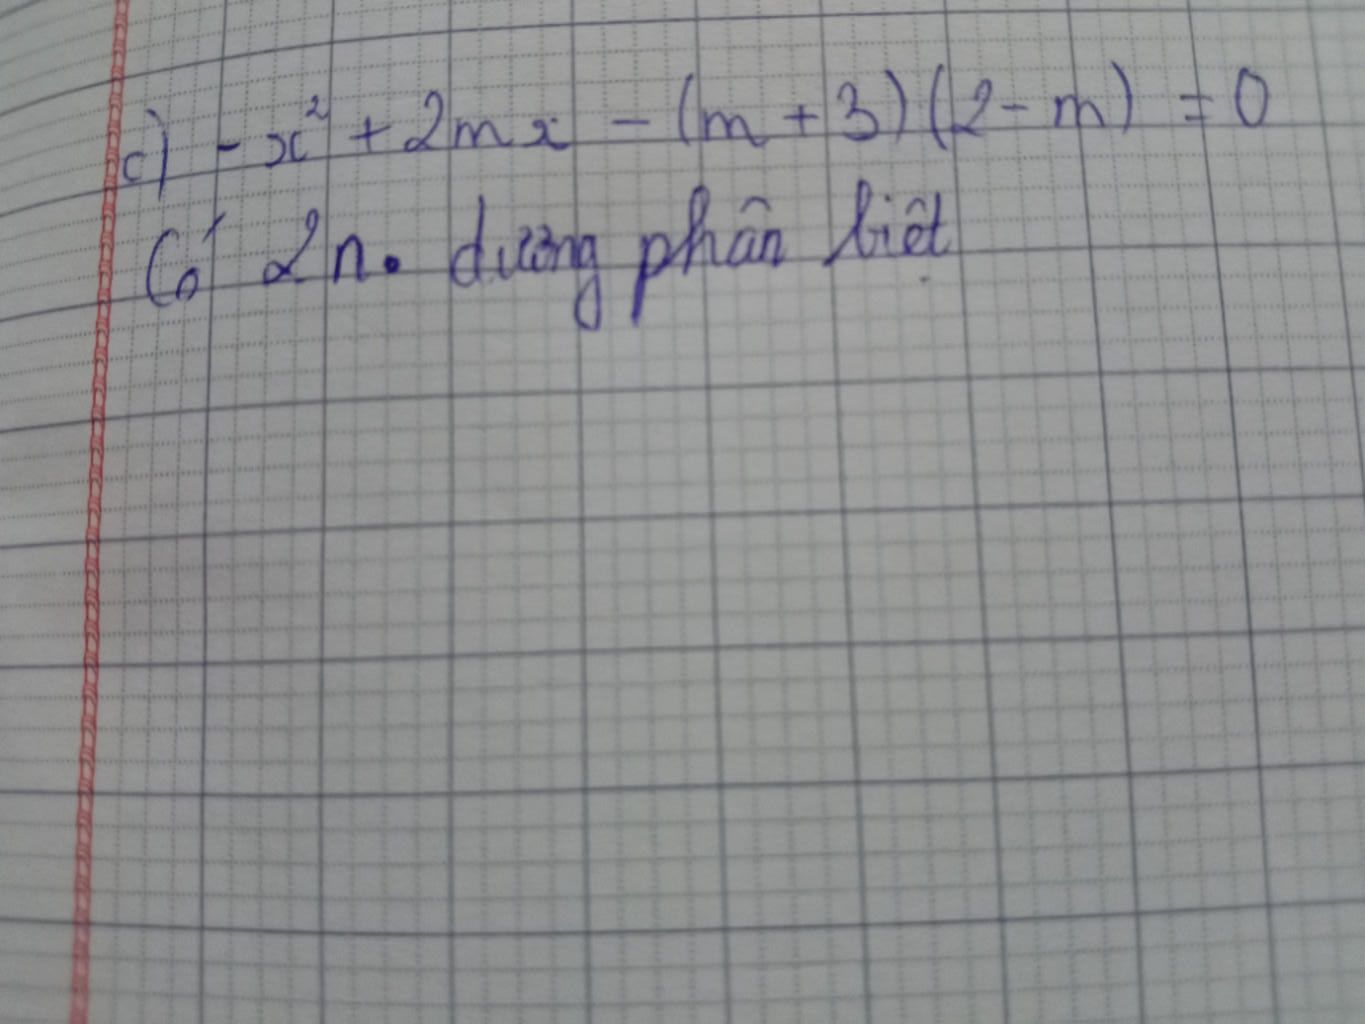 c) -x² + 2mx - (m + 3)(2 - m) = 0
Có 2n. dương phân biệt